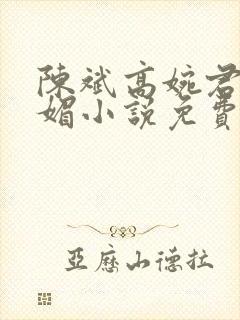 陳斌高婉君
媚小說免費
亞歷山德拉